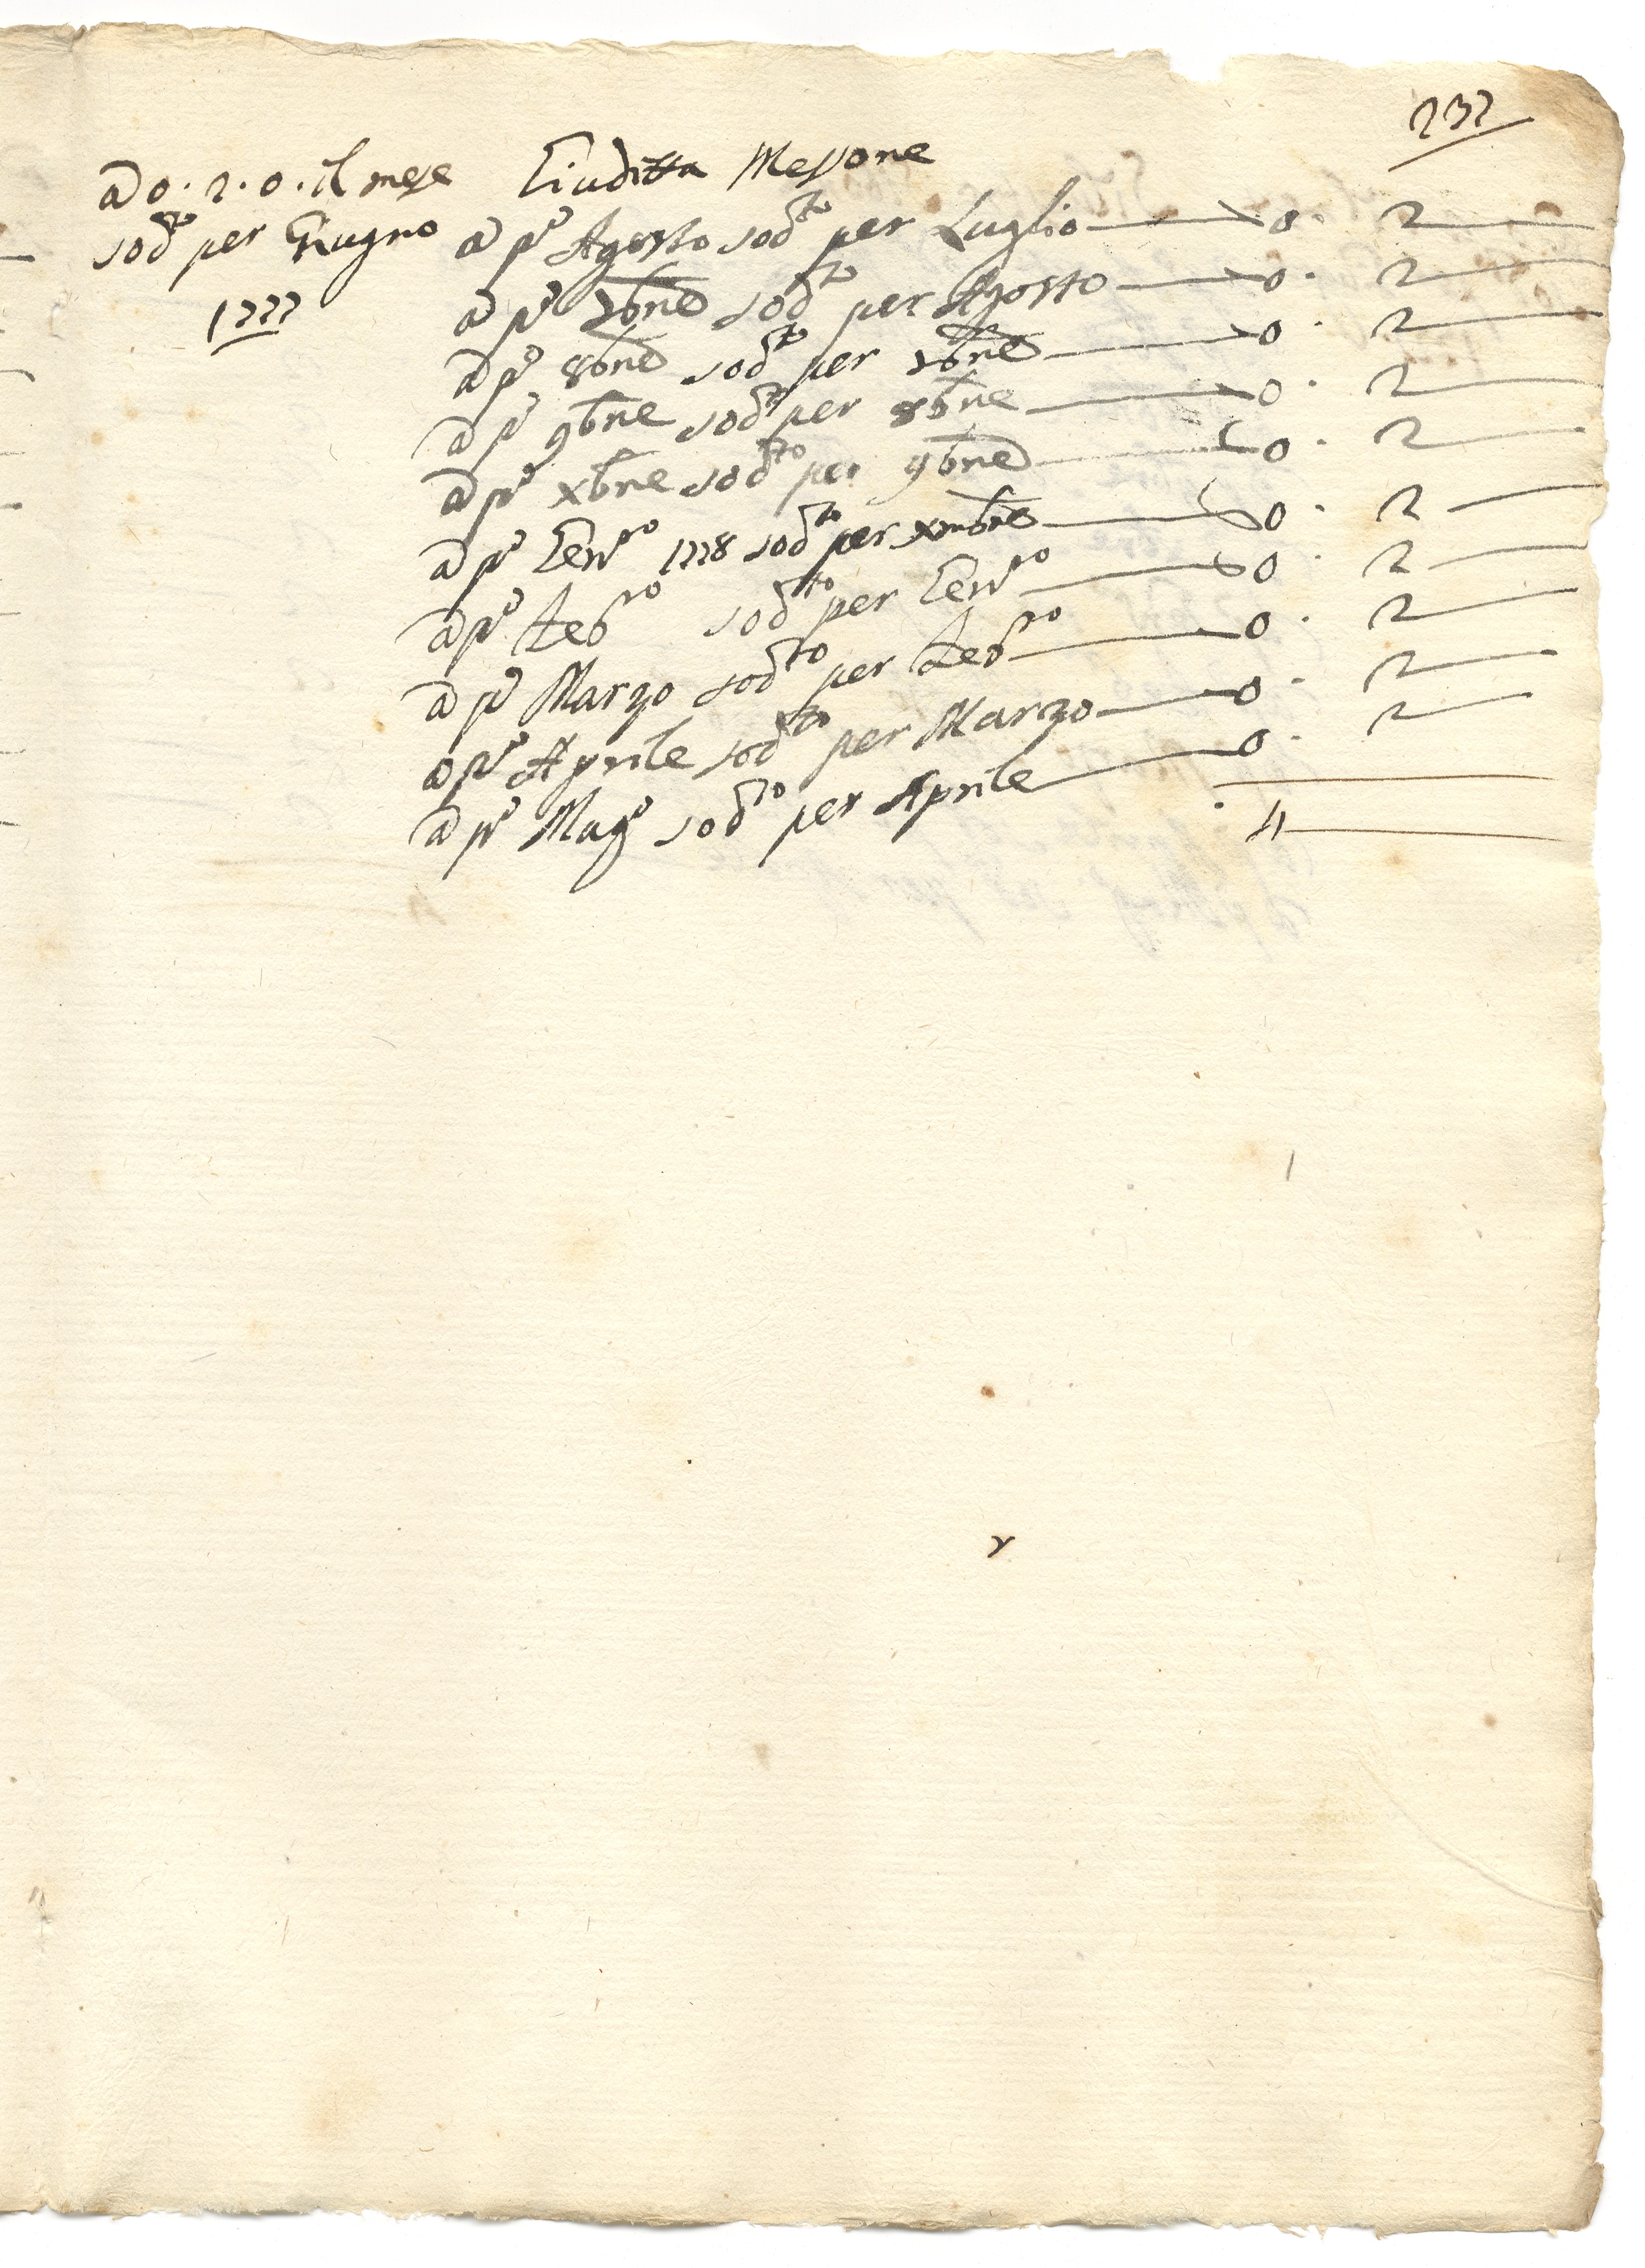 237
a 0. 2. 0. il mese Giuditta Messone
sodto per Giugno
1777
a po Agosto sodto per Luglio 0. 2
a po 7bre sodto per Agosto 0. 2
a po 8bre sodto per 7bre 0. 2
a po 9bre sodto per 8bre 0. 2
a po xbre sodto per 9bre 0. 2
a po Gennro 1778 sodto per xmbre 0. 2
a po Febro sodto per Gennro 0. 2
a po Marzo sodto per Febro 0. 2
a po Aprile sodto per Marzo 0. 2
a po Mago sodto per Aprile 0. 2
4